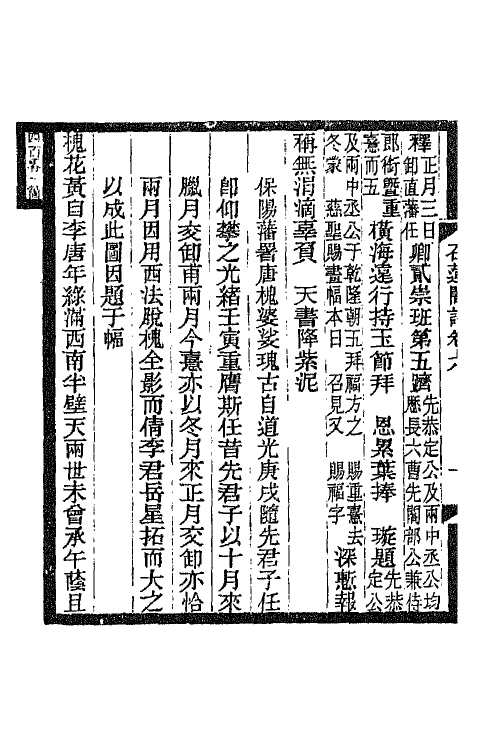 石蓮闇詩卷六　一
釋正月三日卸直藩任卿貳崇班第五躋先恭定公及兩中丞公均歷長六曹先閣部公兼侍
郎銜曁重憙而五橫海遠行持玉節拜　恩累葉捧　璇題先恭定公
及兩中丞公于乾隆朝五拜福方之　賜重憙去冬蒙　慈聖賜畫幅本日　召見又　賜福字深慙報
稱無涓滴辜負　天書降紫泥
保陽藩署唐槐婆娑瑰古自道光庚戌隨先君子任
卽仰攀之光緒壬寅重膺斯任昔先君子以十月來
臘月交卸甫兩月今憙亦以冬月來正月交卸亦恰
兩月因用西法脫槐全影而倩李君岳星拓而大之
以成此圖因題于幅
槐花黃自李唐年綠滿西南半壁天兩世未曾承午蔭且